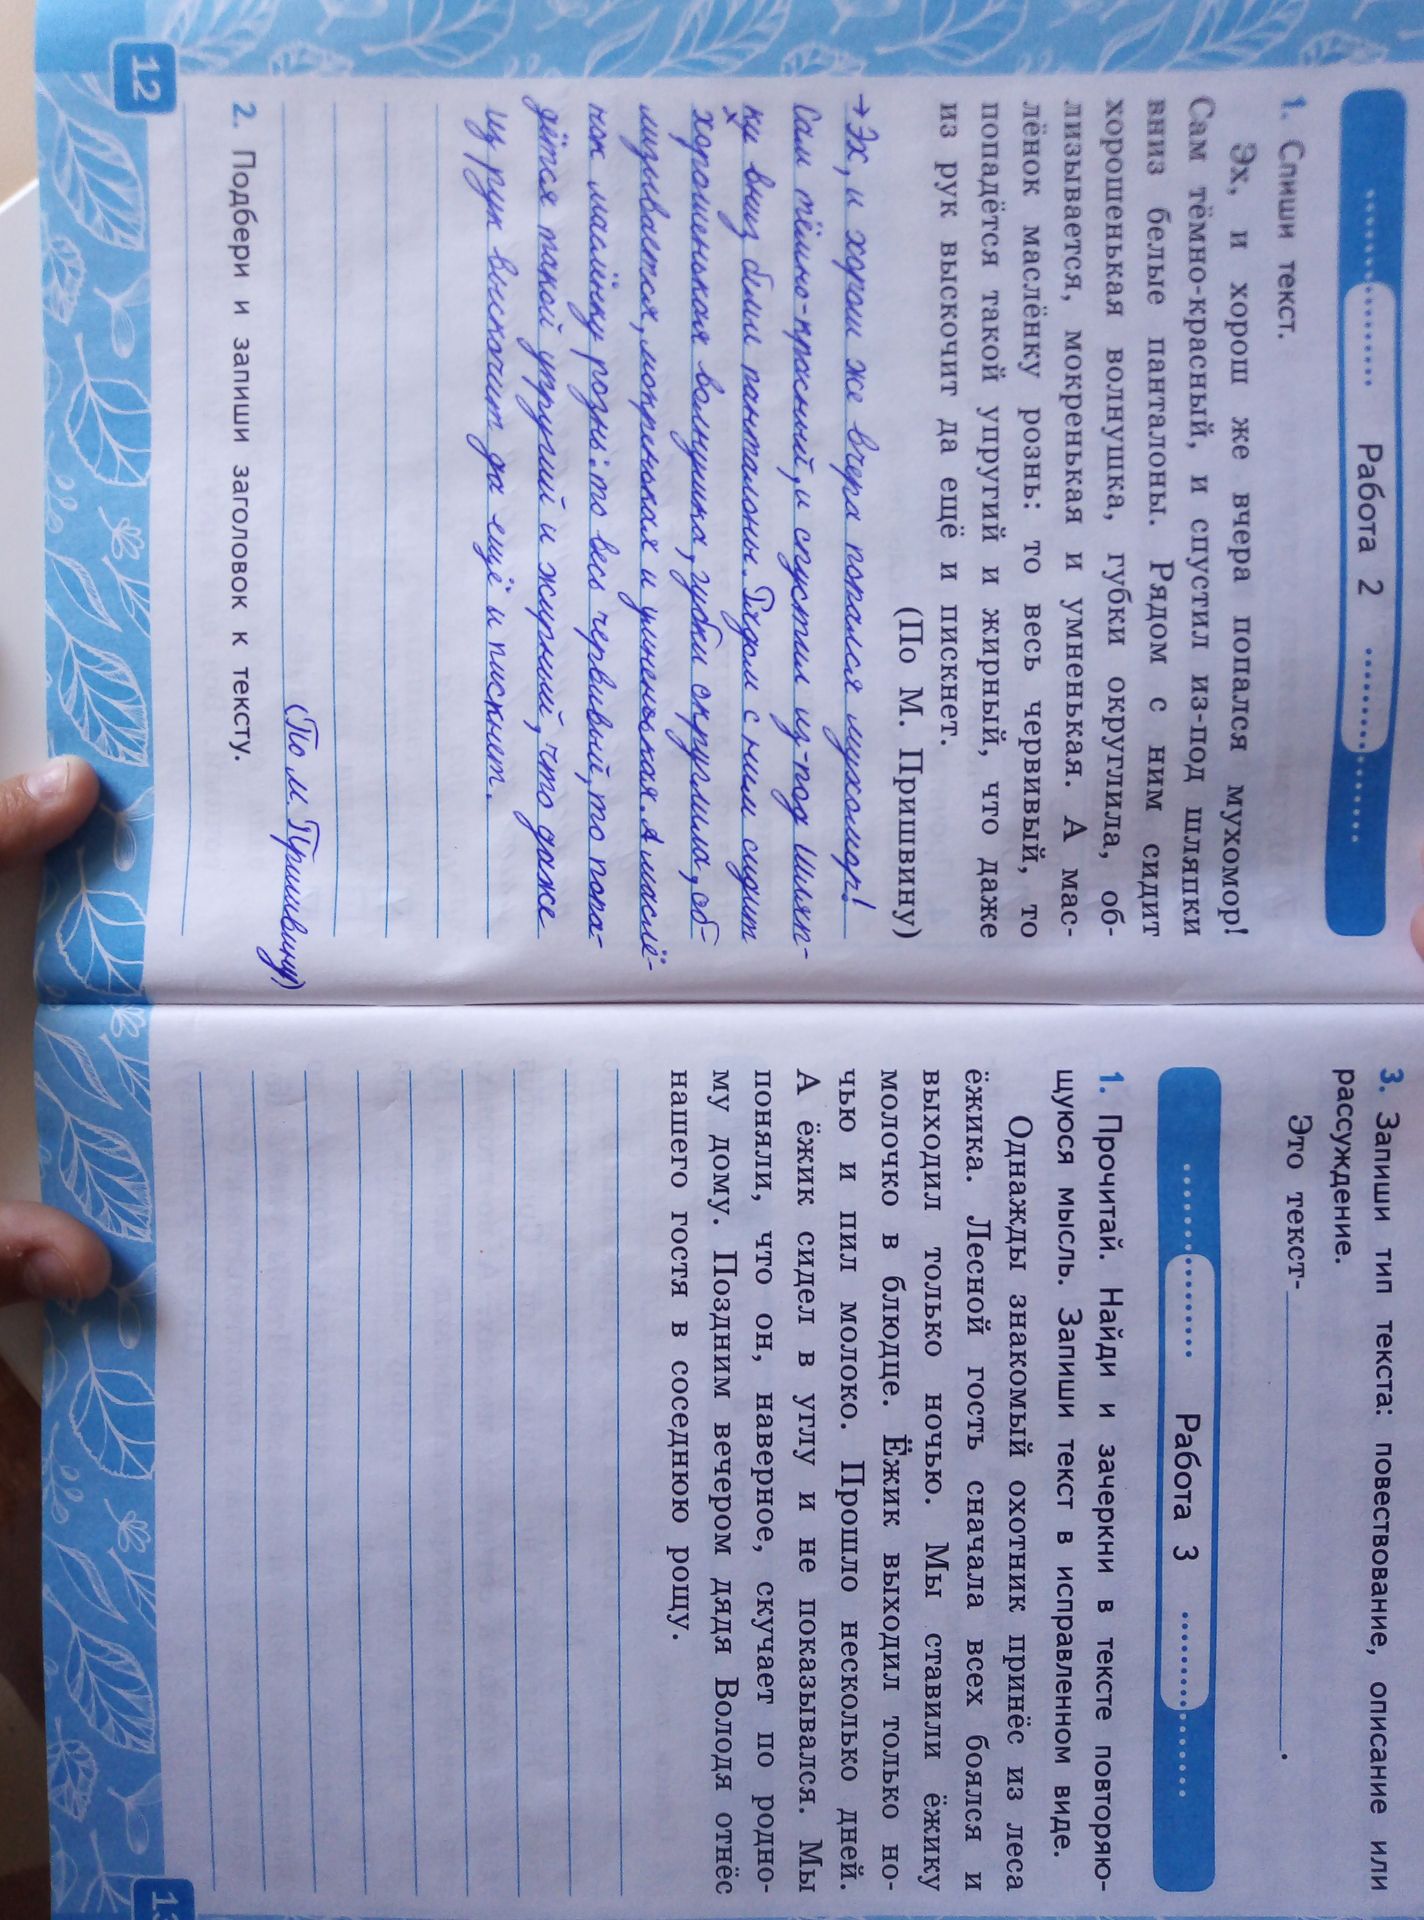 Работа 2
1. Спиши текст.
Эх, и хорош же вчера попался мухомор!
Сам тёмно-красный, и спустил из-под шляпки
вниз белые панталоны. Рядом с ним сидит
хорошенькая волнушка, губки округлила, об-
лизывается, мокренькая и умненькая. А мас-
лёнок маслёнку рознь: то весь червивый, то
попадётся такой упругий и жирный, что даже
из рук выскочит да ещё и пискнет.
(По М. Пришвину)
→ Эх, и хорош же вчера попался мухомор!
Сам тёмно-красный, и спустил из-под шляп-
ки вниз белые панталоны. Рядом с ним сидит
хорошенькая волнушка, губки скруглила, об-
лизывается, мокренькая и умненькая. А маслё-
нок маслёнку рознь: то весь червивый, то попа-
дётся такой упругий и жирный, что даже
из рук выскочит да ещё и пискнет.
(По М. Пришвину)
2. Подбери и запиши заголовок к тексту.
12
3. Запиши тип текста: повествование, описание или
рассуждение.
Это текст-.
Работа 3
1. Прочитай. Найди и зачеркни в тексте повторяю-
щуюся мысль. Запиши текст в исправленном виде.
Однажды знакомый охотник принёс из леса
ёжика. Лесной гость сначала всех боялся и
выходил только ночью. Мы ставили ёжику
молочко в блюдце. Ёжик выходил только но-
чью и пил молоко. Прошло несколько дней.
А ёжик сидел в углу и не показывался. Мы
поняли, что он, наверное, скучает по родно-
му дому. Поздним вечером дядя Володя отнёс
нашего гостя в соседнюю рощу.
13